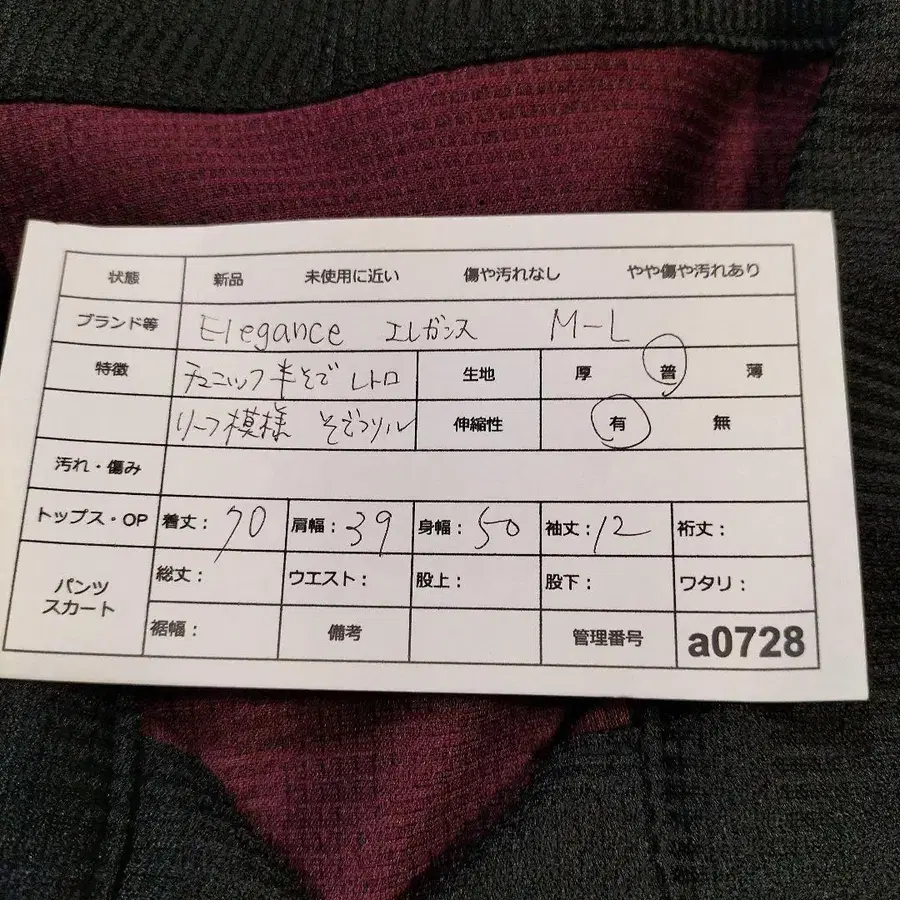 状態 新品 未使用に近い 傷や汚れなし やや傷や汚れあり
ブランド等 Elegance エレガンス M-L
特徴 チュニック 半そで レトロ 生地 厚 普 薄
リーフ模様 そでフリル 伸縮性 有 無
汚れ・傷み
トップス・OP 着丈: 70 肩幅: 39 身幅: 50 袖丈: 12 裄丈:
パンツ 総丈: ウエスト: 股上: 股下: ワタリ:
スカート
裾幅: 備考 管理番号 a0728